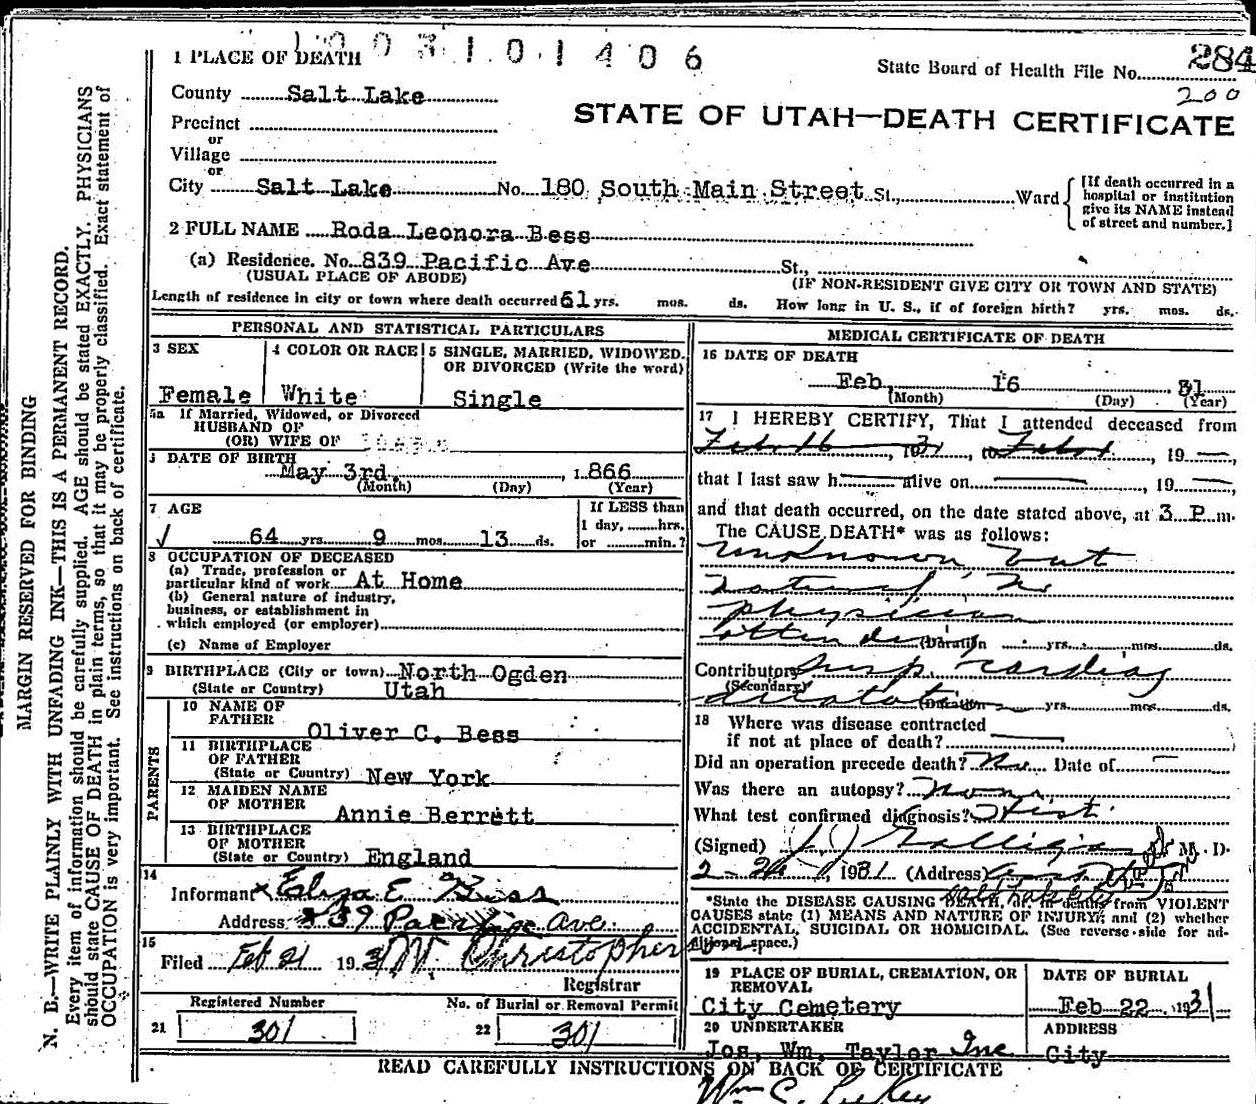 1003101406
1 PLACE OF DEATH
State Board of Health File No. 284
200
County Salt Lake
STATE OF UTAH—DEATH CERTIFICATE
Precinct
or
Village
or
City Salt Lake No. 180 South Main Street St., Ward
[If death occurred in a hospital or institution give its NAME instead of street and number.]
2 FULL NAME Roda Leonora Bess
(a) Residence. No. 839 Pacific Ave St.,
(USUAL PLACE OF ABODE) (IF NON-RESIDENT GIVE CITY OR TOWN AND STATE)
Length of residence in city or town where death occurred 61 yrs. mos. ds. How long in U. S., if of foreign birth? yrs. mos. ds.
PERSONAL AND STATISTICAL PARTICULARS
3 SEX
Female
4 COLOR OR RACE
White
5 SINGLE, MARRIED, WIDOWED.
OR DIVORCED (Write the word)
Single
5a If Married, Widowed, or Divorced
HUSBAND OF
(OR) WIFE OF
DATE OF BIRTH
May 3rd, 1866
(Month) (Day) (Year)
7 AGE
64 yrs. 9 mos. 13 ds.
If LESS than
1 day, hrs.
or min.?
8 OCCUPATION OF DECEASED
(a) Trade, profession or
particular kind of work At Home
(b) General nature of industry,
business, or establishment in
which employed (or employer)
(c) Name of Employer
9 BIRTHPLACE (City or town) North Ogden
(State or Country) Utah
PARENTS
10 NAME OF
FATHER
Oliver C. Bess
11 BIRTHPLACE
OF FATHER
(State or Country) New York
12 MAIDEN NAME
OF MOTHER
Annie Berrett
13 BIRTHPLACE
OF MOTHER
(State or Country) England
14
Informant Eliza E. Bess
Address 839 Pacific Ave.
15
Filed Feb 21 1931 M. Christophersen
Registrar
Registered Number
21 301
No. of Burial or Removal Permit
22 301
MEDICAL CERTIFICATE OF DEATH
16 DATE OF DEATH
Feb. 16 31
(Month) (Day) (Year)
17 I HEREBY CERTIFY, That I attended deceased from
Feb 16, 1931, to Feb, 19
that I last saw h alive on , 19
and that death occurred, on the date stated above, at 3 P. m.
The CAUSE DEATH* was as follows:
unknown but
natural, no
physician
attending
(Duration yrs. mos. ds.
Contributory susp. cardiac
(Secondary) dilatation
(Duration yrs. mos. ds.
18 Where was disease contracted
if not at place of death?
Did an operation precede death? No Date of
Was there an autopsy? None
What test confirmed diagnosis? Hist.
(Signed) J. J. Galligan M. D.
2-24, 1931 (Address)
*State the DISEASE CAUSING DEATH, or in deaths from VIOLENT
CAUSES state (1) MEANS AND NATURE OF INJURY; and (2) whether
ACCIDENTAL, SUICIDAL OR HOMICIDAL. (See reverse side for ad-
ditional space.)
19 PLACE OF BURIAL, CREMATION, OR
REMOVAL
City Cemetery
DATE OF BURIAL
Feb 22 1931
20 UNDERTAKER
Jos. Wm. Taylor Inc.
ADDRESS
City
READ CAREFULLY INSTRUCTIONS ON BACK OF CERTIFICATE
Wm C.
MARGIN RESERVED FOR BINDING
N. B.—WRITE PLAINLY WITH UNFADING INK—THIS IS A PERMANENT RECORD.
Every item of information should be carefully supplied. AGE should be stated EXACTLY. PHYSICIANS
should state CAUSE OF DEATH in plain terms, so that it may be properly classified. Exact statement of
OCCUPATION is very important. See instructions on back of certificate.